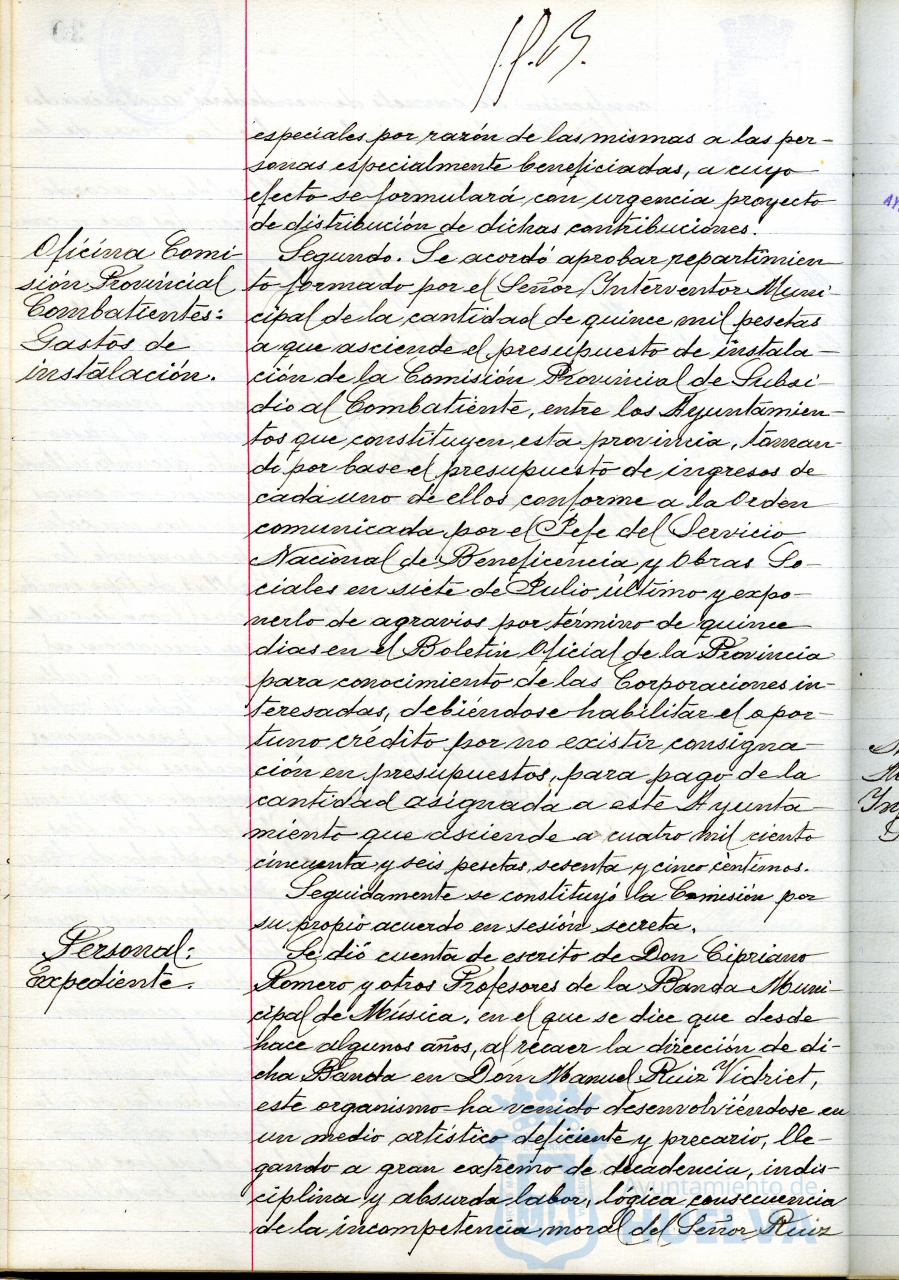 especiales por razón de las mismas a las per-
sonas especialmente beneficiadas, a cuyo
efecto se formulará, con urgencia proyecto
de distribución de dichas contribuciones.
Oficina Comi-
sión Provincial
Combatientes:
Gastos de
instalación.
Segundo. Se acordó aprobar repartimien-
to formado por el Señor Interventor Muni-
cipal de la cantidad de quince mil pesetas
a que asciende el presupuesto de instala-
ción de la Comisión Provincial de Subsi-
dio al Combatiente, entre los Ayuntamien-
tos que constituyen esta provincia, toman-
do por base el presupuesto de ingresos de
cada uno de ellos conforme a la Orden
comunicada por el Jefe del Servicio
Nacional de Beneficencia y Obras So-
ciales en siete de Julio último y expo-
nerlo de agravios por término de quince
dias en el Boletin Oficial de la Provincia
para conocimiento de las Corporaciones in-
teresadas, debiéndose habilitar el opor-
tuno crédito por no existir consigna-
ción en presupuestos, para pago de la
cantidad asignada a este Ayunta-
miento que asciende a cuatro mil ciento
cincuenta y seis pesetas, sesenta y cinco céntimos.
Seguidamente se constituyó la Comisión por
su propio acuerdo en sesión secreta.
Personal:
Expediente.
Se dió cuenta de escrito de Don Cipriano
Romero y otros Profesores de la Banda Muni-
cipal de Música, en el que se dice que desde
hace algunos años, al recaer la dirección de di-
cha Banda en Don Manuel Ruiz Vidriet,
este organismo ha venido desenvolviéndose en
un medio artístico deficiente y precario, lle-
gando a gran extremo de decadencia, indis-
ciplina y absurda labor, lógica consecuencia
de la incompetencia moral del Señor Ruiz
Ayuntamiento de
HUELVA